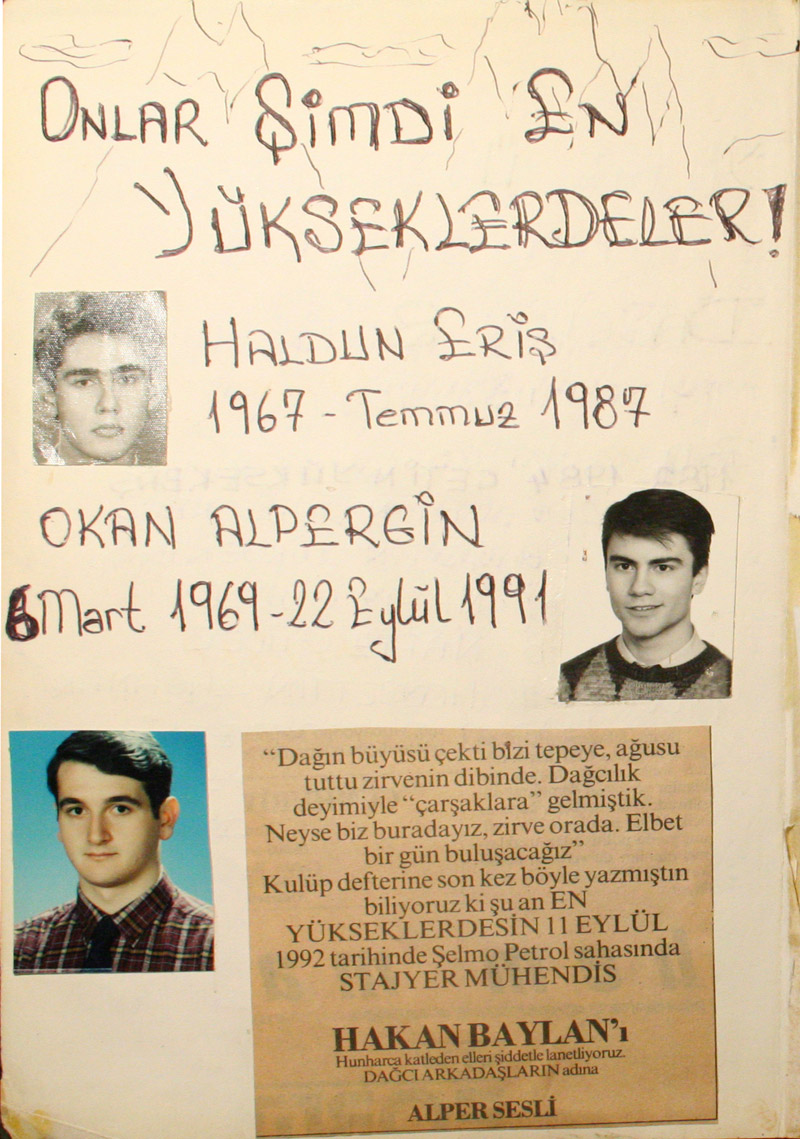 ONLAR ŞİMDİ EN
YÜKSEKLERDELER!
HALDUN ERİŞ
1967 - Temmuz 1987
OKAN ALPERGİN
6 Mart 1969 - 22 Eylül 1991
“Dağın büyüsü çekti bizi tepeye, ağusu
tuttu zirvenin dibinde. Dağcılık
deyimiyle “çarşaklara” gelmiştik.
Neyse biz buradayız, zirve orada. Elbet
bir gün buluşacağız”
Kulüp defterine son kez böyle yazmıştın
biliyoruz ki şu an EN
YÜKSEKLERDESİN 11 EYLÜL
1992 tarihinde Şelmo Petrol sahasında
STAJYER MÜHENDİS
HAKAN BAYLAN’ı
Hunharca katleden elleri şiddetle lanetliyoruz.
DAĞCI ARKADAŞLARIN adına
ALPER SESLİ